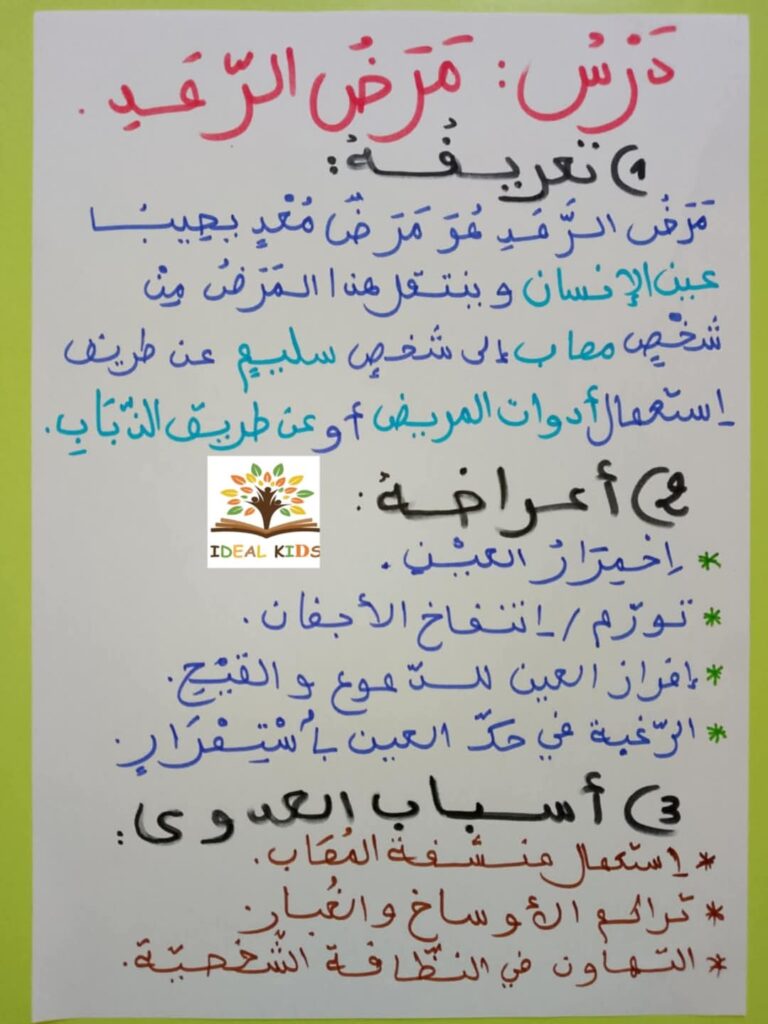 دَرْسُ : مَرَضُ الرّمَدِ .
1) تعريفُهُ :
مَرَضُ الرَّمَدِ هُوَ مَرَضٌ مُعْدٍ يصِيبُ
عين الإنسان وينتقل هذا المَرَضُ مِنْ
شَخْصٍ مصاب إلى شَخصٍ سليمٍ عن طريق
إستعمال أدوات المريض أو عن طريق الذّبَابِ.
2) أعراضهُ :
IDEAL KIDS
* إحْمِرَارُ العيْنِ .
* تورّم / إنتفاخ الأجفان .
* إفراز العين للدّموع والقيْحِ.
* الرّغبة في حكّ العين بأسْتِمْرَارٍ.
3) أسباب العدوى :
* إستعمال منشفة المُصَاب.
* تراكم الأوساخ والغُبار.
* التهاون في النّظافة الشّخصيّة.